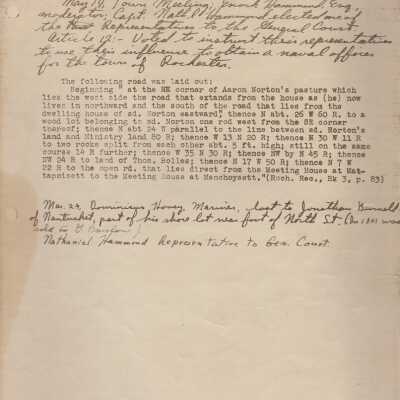 May 14 Town Meeting, Enoch Hammond, Esq,
moderator, Capt. Nath'l Hammond elected one of
the Representatives to the General Court
Article 12:- Voted to instruct their representatives
to use their influence to obtain a naval officer
for the town of Rochester.
The following road was laid out:
Beginning " at the NE corner of Aaron Norton's pasture which
lies the west side the road that extands from the house as (he) now
lives in northward and the south of the road that lies from the
dwelling house of sd. Norton eastward," thence N abt. 26 W 60 R. to a
wood lot belonging to sd. Norton one rod west from the SE corner
thereof; thence N abt 24 W parallel to the line between sd. Norton's
land and Ministry land 80 R; thence W 13 N 20 R; thence N 30 W 11 R
to two rocks split from each other abt. 5 ft. high; still on the same
course 14 R further; thence W 35 N 30 R; thence NW by N 45 R; thence
NW 24 R to land of Thos. Bolles; thence N 17 W 50 R; thence N 7 W
22 R to the open rd. that lies direct from the Meeting House at Mat-
tapoisett to the Meeting House at Manchoysett."(Roch. Rec., Bk 3, p. 83)
Mar. 24 Dominicus Hovey, Mariner, deed to Jonathan Bunnell
of Nantucket, part of his shore lot near foot of North St. (In 1801 was
sold to G Barstow)
Nathaniel Hammond Representative to Gen. Court.